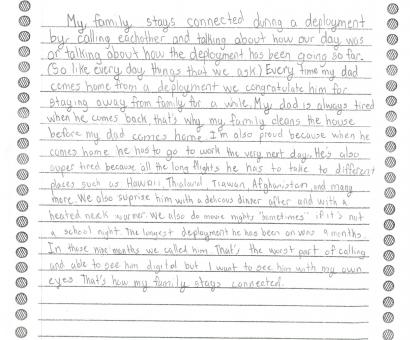 My family stays connected during a deployment
by calling eachother and talking about how our day was
or talking about how the deployment has been going so far.
(So like every day things that we ask) Every time my dad
comes home from a deployment we congratulate him for
staying away from family for a while. My dad is always tired
when he comes back, that's why my family cleans the house
before my dad comes home. I'm also proud because when he
comes home he has to go to work the very next day. He's also
super tired because all the long flights he has to take to different
places such as Hawaii, Thailand, Tiawan, Afghanistan, and many
more. We also suprise him with a delicous dinner after and with a
heated neck warmer. We also do movie nights "sometimes" if it's not
a school night. The longest deployment he has been on was 9 months.
In those nine months we called him. That's the worst part of calling
and able to see him digital but I want to see him with my own
eyes. That's how my family stays connected.